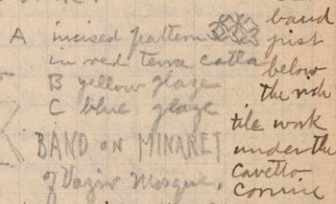 A incised pattern
in red terra cotta
B yellow glaze
C blue glaze
BAND ON MINARET
of Vazir Mosque.
band
just
below
the
tile work
under the
cavetto
cornice